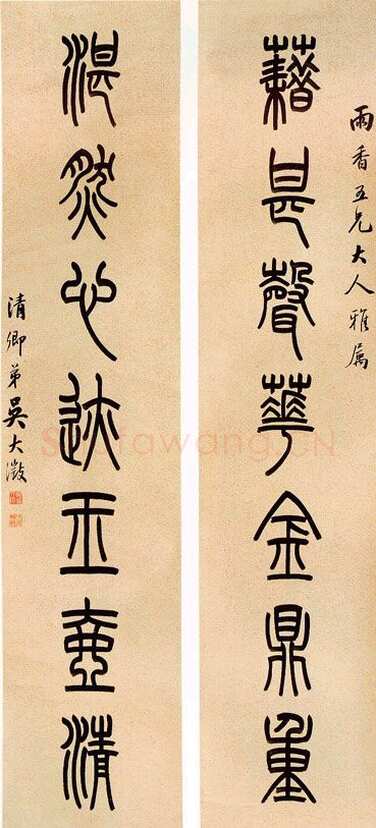 雨香五兄大人雅属
藉甚聲華金鼎重
湛然心迹玉壺清
清卿弟吳大澂
Shufawang.CN